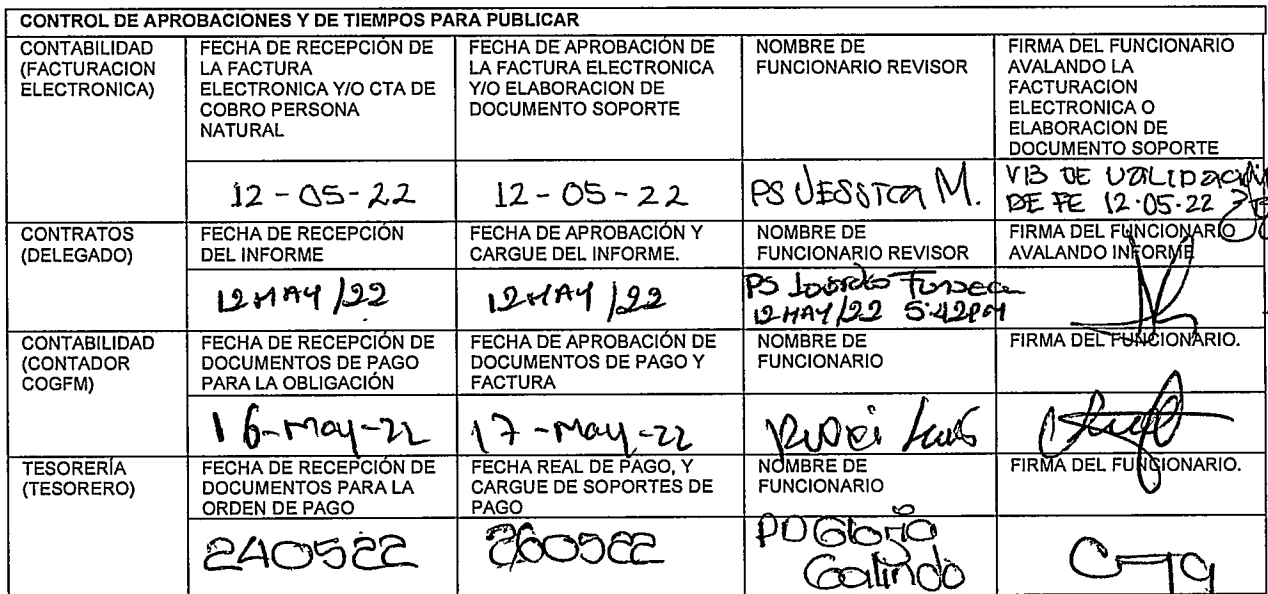 CONTROL DE APROBACIONES Y DE TIEMPOS PARA PUBLICAR
CONTABILIDAD
(FACTURACION
ELECTRONICA)
FECHA DE RECEPCIÓN DE
LA FACTURA
ELECTRONICA Y/O CTA DE
COBRO PERSONA
NATURAL
FECHA DE APROBACIÓN DE
LA FACTURA ELECTRONICA
Y/O ELABORACION DE
DOCUMENTO SOPORTE
NOMBRE DE
FUNCIONARIO REVISOR
FIRMA DEL FUNCIONARIO
AVALANDO LA
FACTURACION
ELECTRONICA O
ELABORACION DE
DOCUMENTO SOPORTE
12-05-22
12-05-22
PS JESSICA M.
VB DE VALIDACIÓN
DE FE 12.05.22
CONTRATOS
(DELEGADO)
FECHA DE RECEPCIÓN
DEL INFORME
FECHA DE APROBACIÓN Y
CARGUE DEL INFORME.
NOMBRE DE
FUNCIONARIO REVISOR
FIRMA DEL FUNCIONARIO
AVALANDO INFORME
12 MAY /22
12 MAY /22
PS Fonseca
12 MAY/22 5:42PM
CONTABILIDAD
(CONTADOR
COGFM)
FECHA DE RECEPCIÓN DE
DOCUMENTOS DE PAGO
PARA LA OBLIGACIÓN
FECHA DE APROBACIÓN DE
DOCUMENTOS DE PAGO Y
FACTURA
NOMBRE DE
FUNCIONARIO
FIRMA DEL FUNCIONARIO.
16-May-22
17-May-22
TESORERÍA
(TESORERO)
FECHA DE RECEPCIÓN DE
DOCUMENTOS PARA LA
ORDEN DE PAGO
FECHA REAL DE PAGO, Y
CARGUE DE SOPORTES DE
PAGO
NOMBRE DE
FUNCIONARIO
FIRMA DEL FUNCIONARIO.
240522
260522
PD Gloria
Galindo